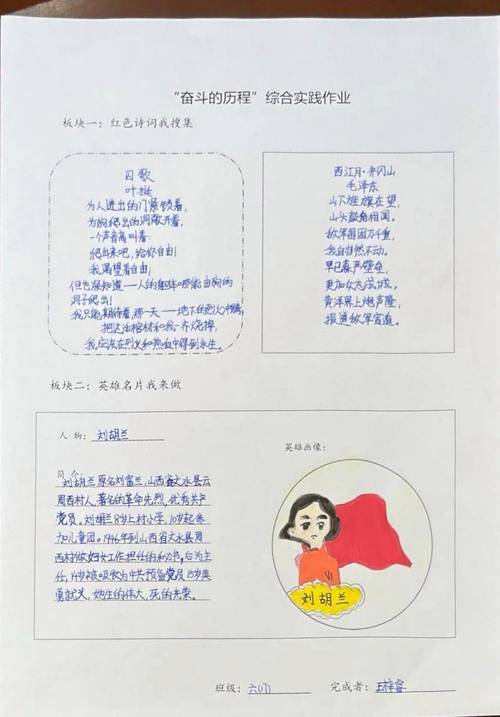 “奋斗的历程”综合实践作业
板块一：红色诗词我搜集
囚歌
叶挺
为人进出的门紧锁着，
为狗爬出的洞敞开着，
一个声音高叫着：
爬出来吧，给你自由！
我渴望着自由，
但也深知道——人的躯体哪能由狗的
洞子爬出！
我只能期待着，那一天——地下的烈火冲腾，
把这活棺材和我一齐烧掉，
我应该在烈火和热血中得到永生。
西江月·井冈山
毛泽东
山下旌旗在望，
山头鼓角相闻。
敌军围困万千重，
我自岿然不动。
早已森严壁垒，
更加众志成城。
黄洋界上炮声隆，
报道敌军宵遁。
板块二：英雄名片我来做
人物：刘胡兰
简介：
刘胡兰原名刘富兰，山西省文水县云
周西村人，著名的革命先烈，优秀共产
党员。刘胡兰8岁上村小学，10岁起参
加儿童团。1946年到山西省文水县周
西村做妇女工作担任的和
任，14岁被吸收为中共预备党员
勇就义，她生的伟大，死的光荣。
英雄画像：
刘胡兰
班级：六(7)
完成者：王梓睿